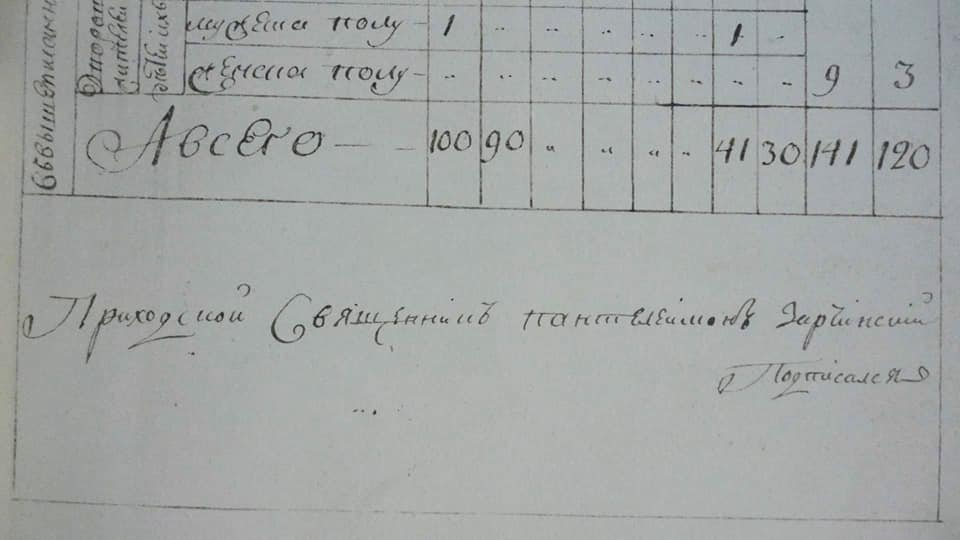 мужеска полу – 1 .. .. .. .. .. 1 ..
женска полу – .. .. .. .. .. .. .. .. 9 3
А всего — — 100 90 „ „ „ „ 41 30 141 120
Приходской Священникъ пантелеимонъ
Подписался